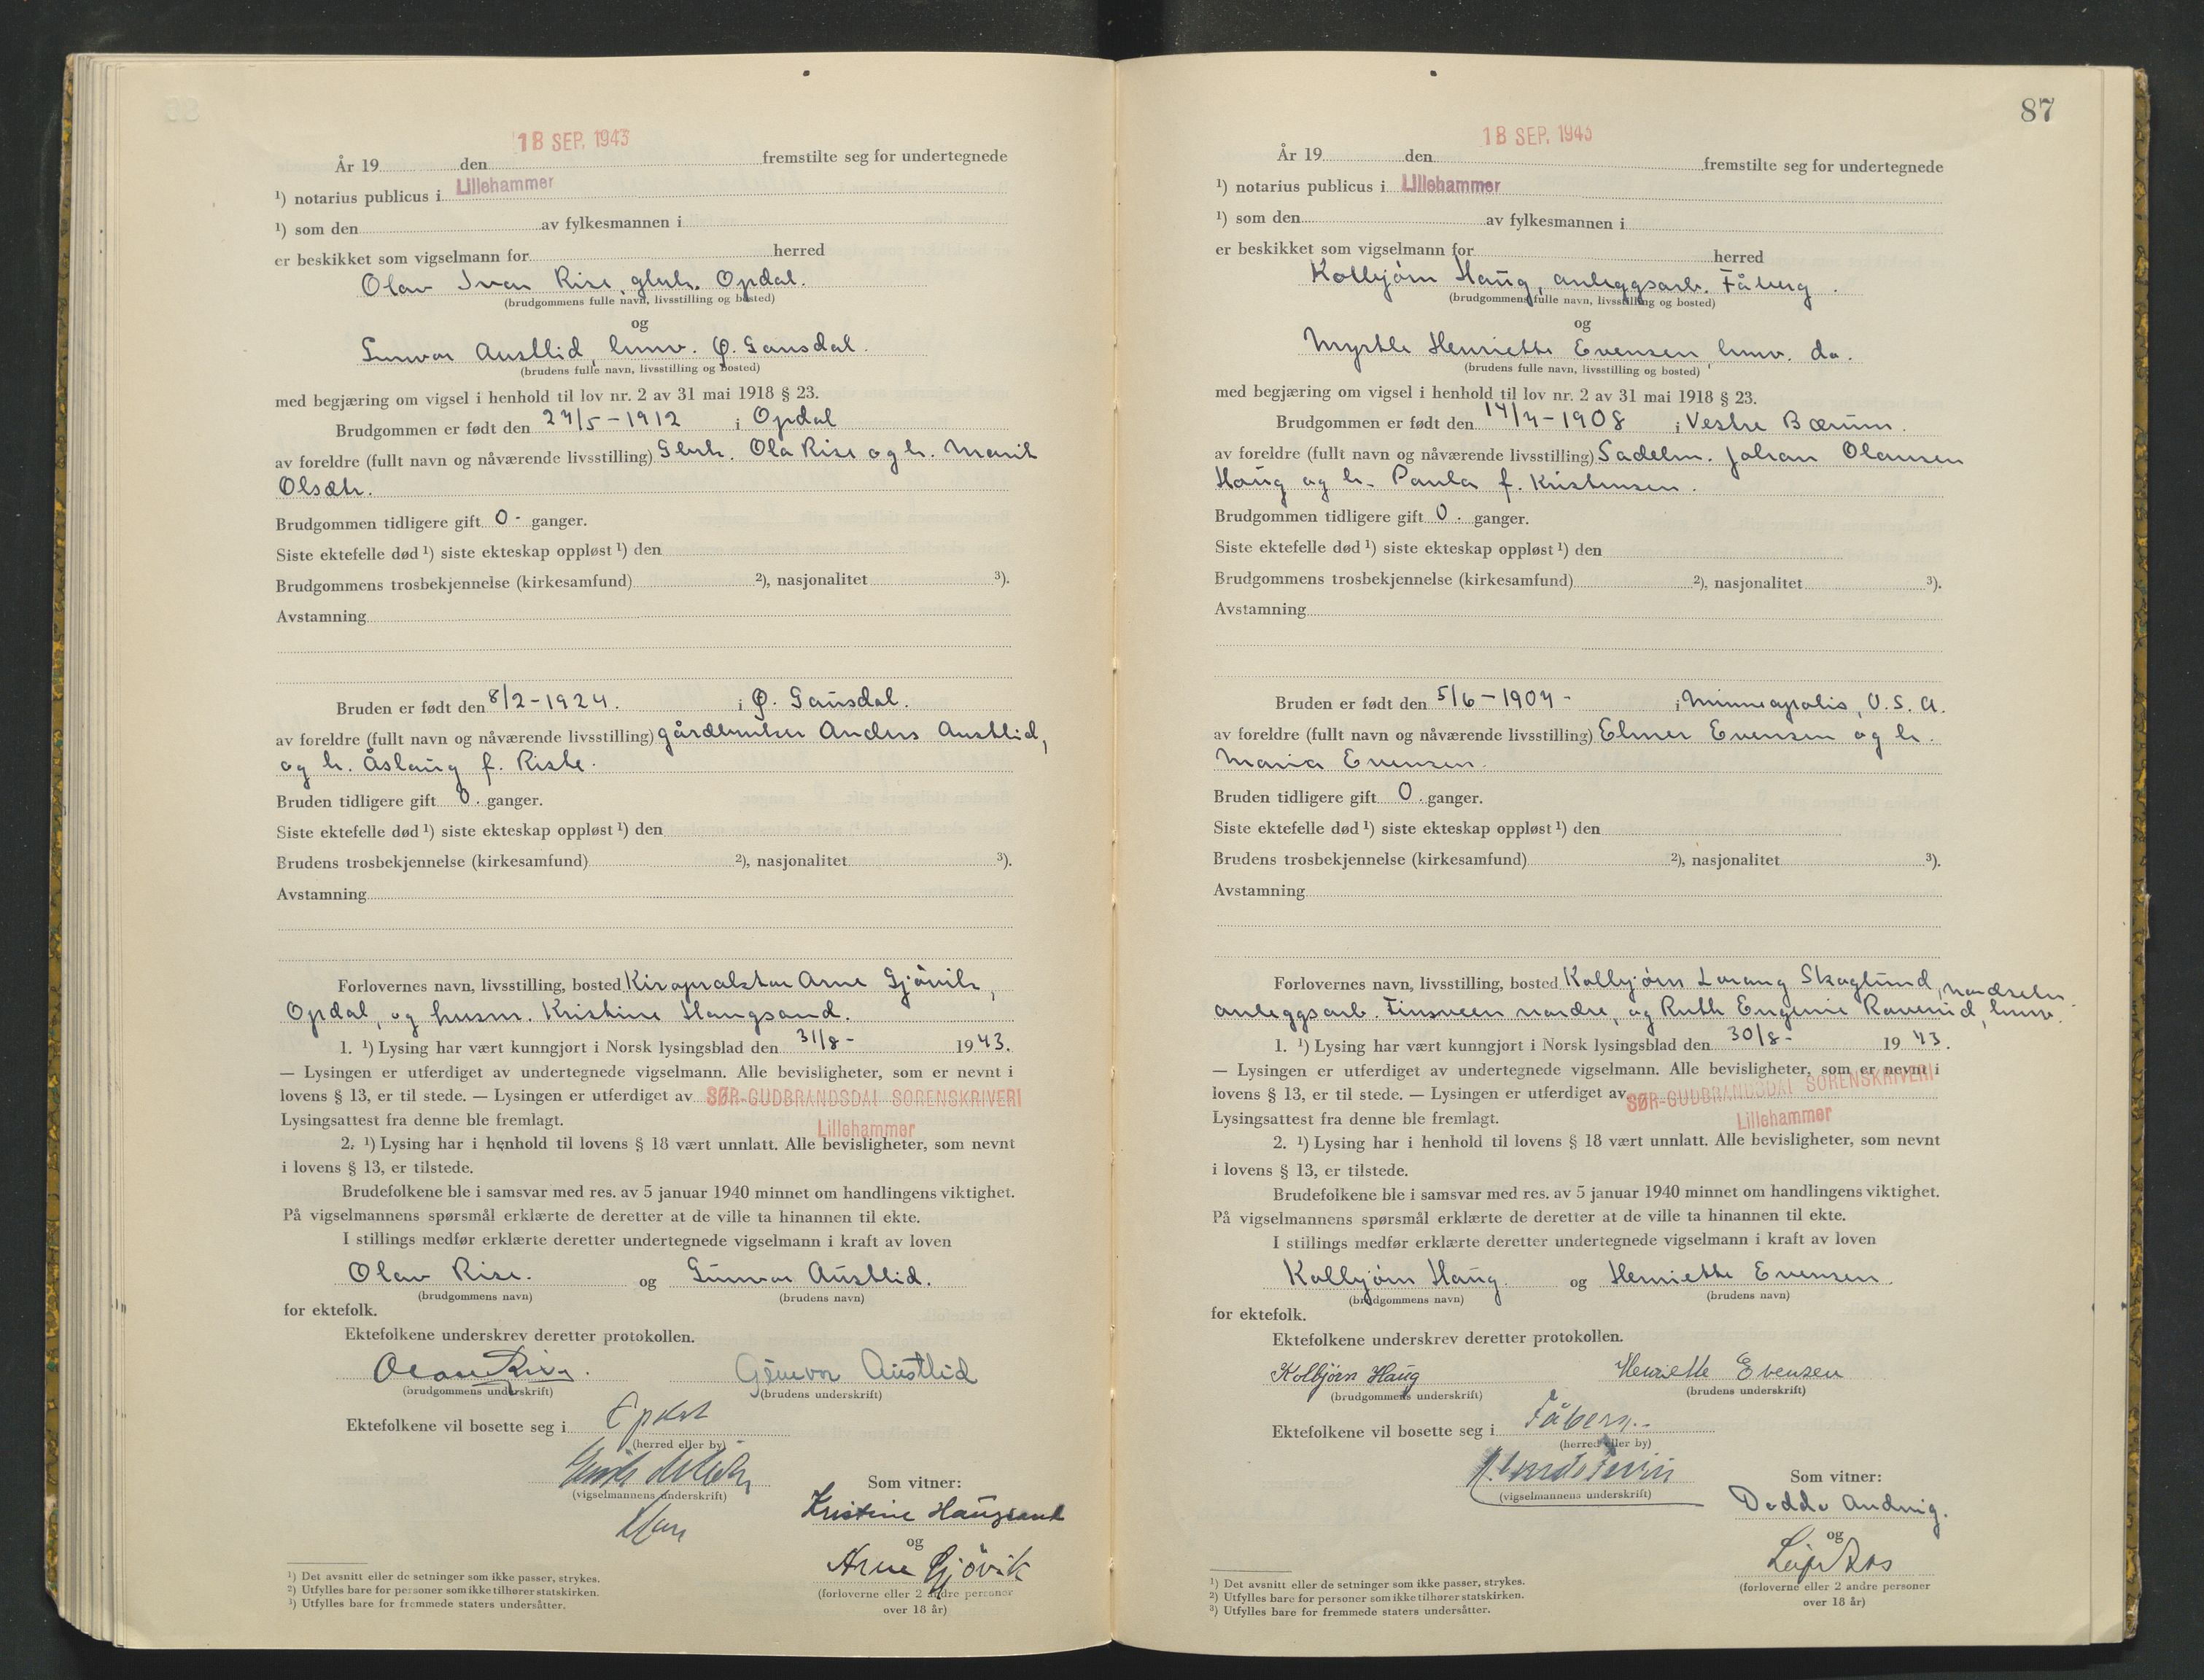 18 SEP. 1943
År 19 den fremstilte seg for undertegnede
¹) notarius publicus i Lillehammer
¹) som den av fylkesmannen i
er beskikket som vigselmann for herred
Olav Ivar Rise, gbrk. Opdal.
(brudgommens fulle navn, livsstilling og bosted)
og
Gunvor Austlid, husv. Ø. Gausdal.
(brudens fulle navn, livsstilling og bosted)
med begjæring om vigsel i henhold til lov nr. 2 av 31 mai 1918 § 23.
Brudgommen er født den 27/5-1912 i Opdal
av foreldre (fullt navn og nåværende livsstilling) Gbrk. Ola Rise og h. Marit
Olsdtr.
Brudgommen tidligere gift 0 - ganger.
Siste ektefelle død ¹) siste ekteskap oppløst ¹) den
Brudgommens trosbekjennelse (kirkesamfund) ²), nasjonalitet ³).
Avstamning
Bruden er født den 8/2-1924. i Ø. Gausdal.
av foreldre (fullt navn og nåværende livsstilling) gårdbruker Anders Austlid,
og h. Åslaug f. Riste.
Bruden tidligere gift 0. ganger.
Siste ektefelle død ¹) siste ekteskap oppløst ¹) den
Brudens trosbekjennelse (kirkesamfund) ²), nasjonalitet ³).
Avstamning
Forlovernes navn, livsstilling, bosted Kiropraktor Arne Gjövik,
Opdal, og husm. Kristine Haugsand.
1. ¹) Lysing har vært kunngjort i Norsk lysingsblad den 31/8- 1943.
— Lysingen er utferdiget av undertegnede vigselmann. Alle bevisligheter, som er nevnt i
lovens § 13, er til stede. — Lysingen er utferdiget av SØR-GUDBRANDSDAL SORENSKRIVERI
Lysingsattest fra denne ble fremlagt. Lillehammer
2. ¹) Lysing har i henhold til lovens § 18 vært unnlatt. Alle bevisligheter, som nevnt
i lovens § 13, er tilstede.
Brudefolkene ble i samsvar med res. av 5 januar 1940 minnet om handlingens viktighet.
På vigselmannens spørsmål erklærte de deretter at de ville ta hinannen til ekte.
I stillings medfør erklærte deretter undertegnede vigselmann i kraft av loven
Olav Rise. og Gunvor Austlid.
(brudgommens navn) (brudens navn)
for ektefolk.
Ektefolkene underskrev deretter protokollen.
Olav Rise. Gunvor Austlid
(brudgommens underskrift) (brudens underskrift)
Ektefolkene vil bosette seg i Opdal
(herred eller by)
(vigselmannens underskrift)
Som vitner:
Kristine Haugsand
og
Arne Gjövik
(forloverne eller 2 andre personer
over 18 år)
¹) Det avsnitt eller de setninger som ikke passer, strykes.
²) Utfylles bare for personer som ikke tilhører statskirken.
³) Utfylles bare for fremmede staters undersåtter.
87
18 SEP. 1943
År 19 den fremstilte seg for undertegnede
¹) notarius publicus i Lillehammer
¹) som den av fylkesmannen i
er beskikket som vigselmann for herred
Kolbjørn Haug, anleggsarb. Fåberg.
(brudgommens fulle navn, livsstilling og bosted)
og
Myrtle Henriette Evensen husv. do.
(brudens fulle navn, livsstilling og bosted)
med begjæring om vigsel i henhold til lov nr. 2 av 31 mai 1918 § 23.
Brudgommen er født den 14/4-1908 i Vestre Bærum.
av foreldre (fullt navn og nåværende livsstilling) Sadelm. Johan Olausen
Haug og h. Paula f. Kristensen.
Brudgommen tidligere gift 0. ganger.
Siste ektefelle død ¹) siste ekteskap oppløst ¹) den
Brudgommens trosbekjennelse (kirkesamfund) ²), nasjonalitet ³).
Avstamning
Bruden er født den 5/6-1904- i Minneapolis, U.S.A.
av foreldre (fullt navn og nåværende livsstilling) Elmer Evensen og h.
Maria Evensen.
Bruden tidligere gift 0. ganger.
Siste ektefelle død ¹) siste ekteskap oppløst ¹) den
Brudens trosbekjennelse (kirkesamfund) ²), nasjonalitet ³).
Avstamning
Forlovernes navn, livsstilling, bosted Kolbjørn Lorang Skoglund, Nordseter
anleggsarb. Finsveen nordre, og Ruth Eugenie husv.
1. ¹) Lysing har vært kunngjort i Norsk lysingsblad den 30/8- 1943.
— Lysingen er utferdiget av undertegnede vigselmann. Alle bevisligheter, som er nevnt i
lovens § 13, er til stede. — Lysingen er utferdiget av SØR-GUDBRANDSDAL SORENSKRIVERI
Lysingsattest fra denne ble fremlagt. Lillehammer
2. ¹) Lysing har i henhold til lovens § 18 vært unnlatt. Alle bevisligheter, som nevnt
i lovens § 13, er tilstede.
Brudefolkene ble i samsvar med res. av 5 januar 1940 minnet om handlingens viktighet.
På vigselmannens spørsmål erklærte de deretter at de ville ta hinannen til ekte.
I stillings medfør erklærte deretter undertegnede vigselmann i kraft av loven
Kolbjørn Haug. og Henriette Evensen.
(brudgommens navn) (brudens navn)
for ektefolk.
Ektefolkene underskrev deretter protokollen.
Kolbjörn Haug Henriette Evensen
(brudgommens underskrift) (brudens underskrift)
Ektefolkene vil bosette seg i Fåberg.
(herred eller by)
(vigselmannens underskrift)
Som vitner:
Dodde Andvig.
og
(forloverne eller 2 andre personer
over 18 år)
¹) Det avsnitt eller de setninger som ikke passer, strykes.
²) Utfylles bare for personer som ikke tilhører statskirken.
³) Utfylles bare for fremmede staters undersåtter.